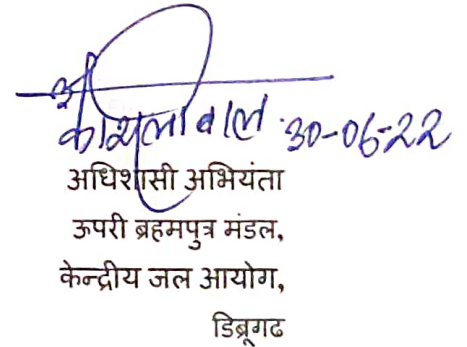 30-06-22
अधिशासी अभियंता
ऊपरी ब्रहमपुत्र मंडल,
केन्द्रीय जल आयोग,
डिब्रूगढ